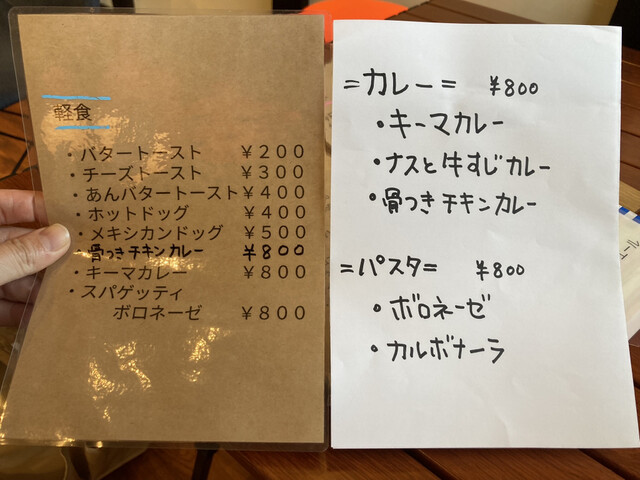 軽食
・バタートースト ￥200
・チーズトースト ￥300
・あんバタートースト ￥400
・ホットドッグ ￥400
・メキシカンドッグ ￥500
・骨つきチキンカレー ￥800
・キーマカレー ￥800
・スパゲッティ
ボロネーゼ ￥800
=カレー= ￥800
・キーマカレー
・ナスと牛すじカレー
・骨つきチキンカレー
=パスタ= ￥800
・ボロネーゼ
・カルボナーラ